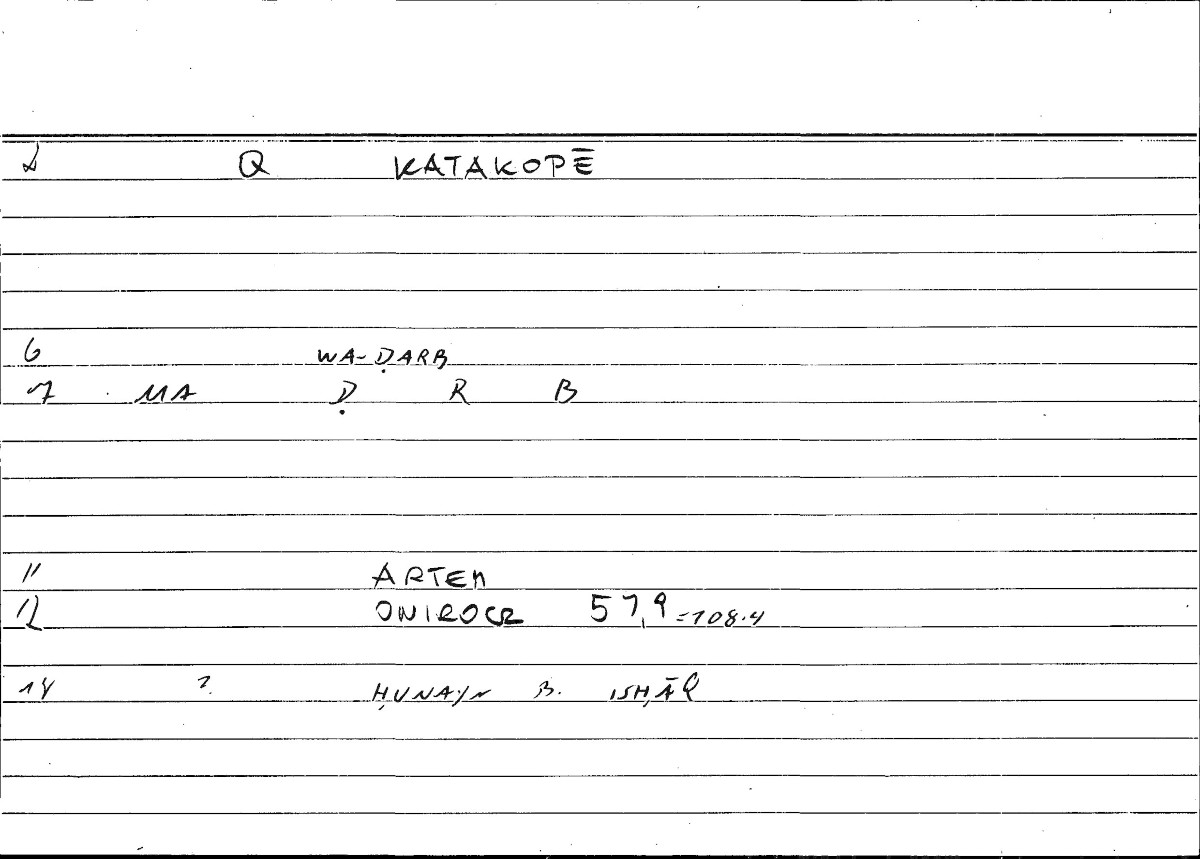 1 Q KATAKOPĒ
6 WA-ḌARB
7 MA Ḍ R B
11 ARTEM
12 ONIROCR 57,9 =108.4
14 2. ḤUNAYN B. ISḤĀQ